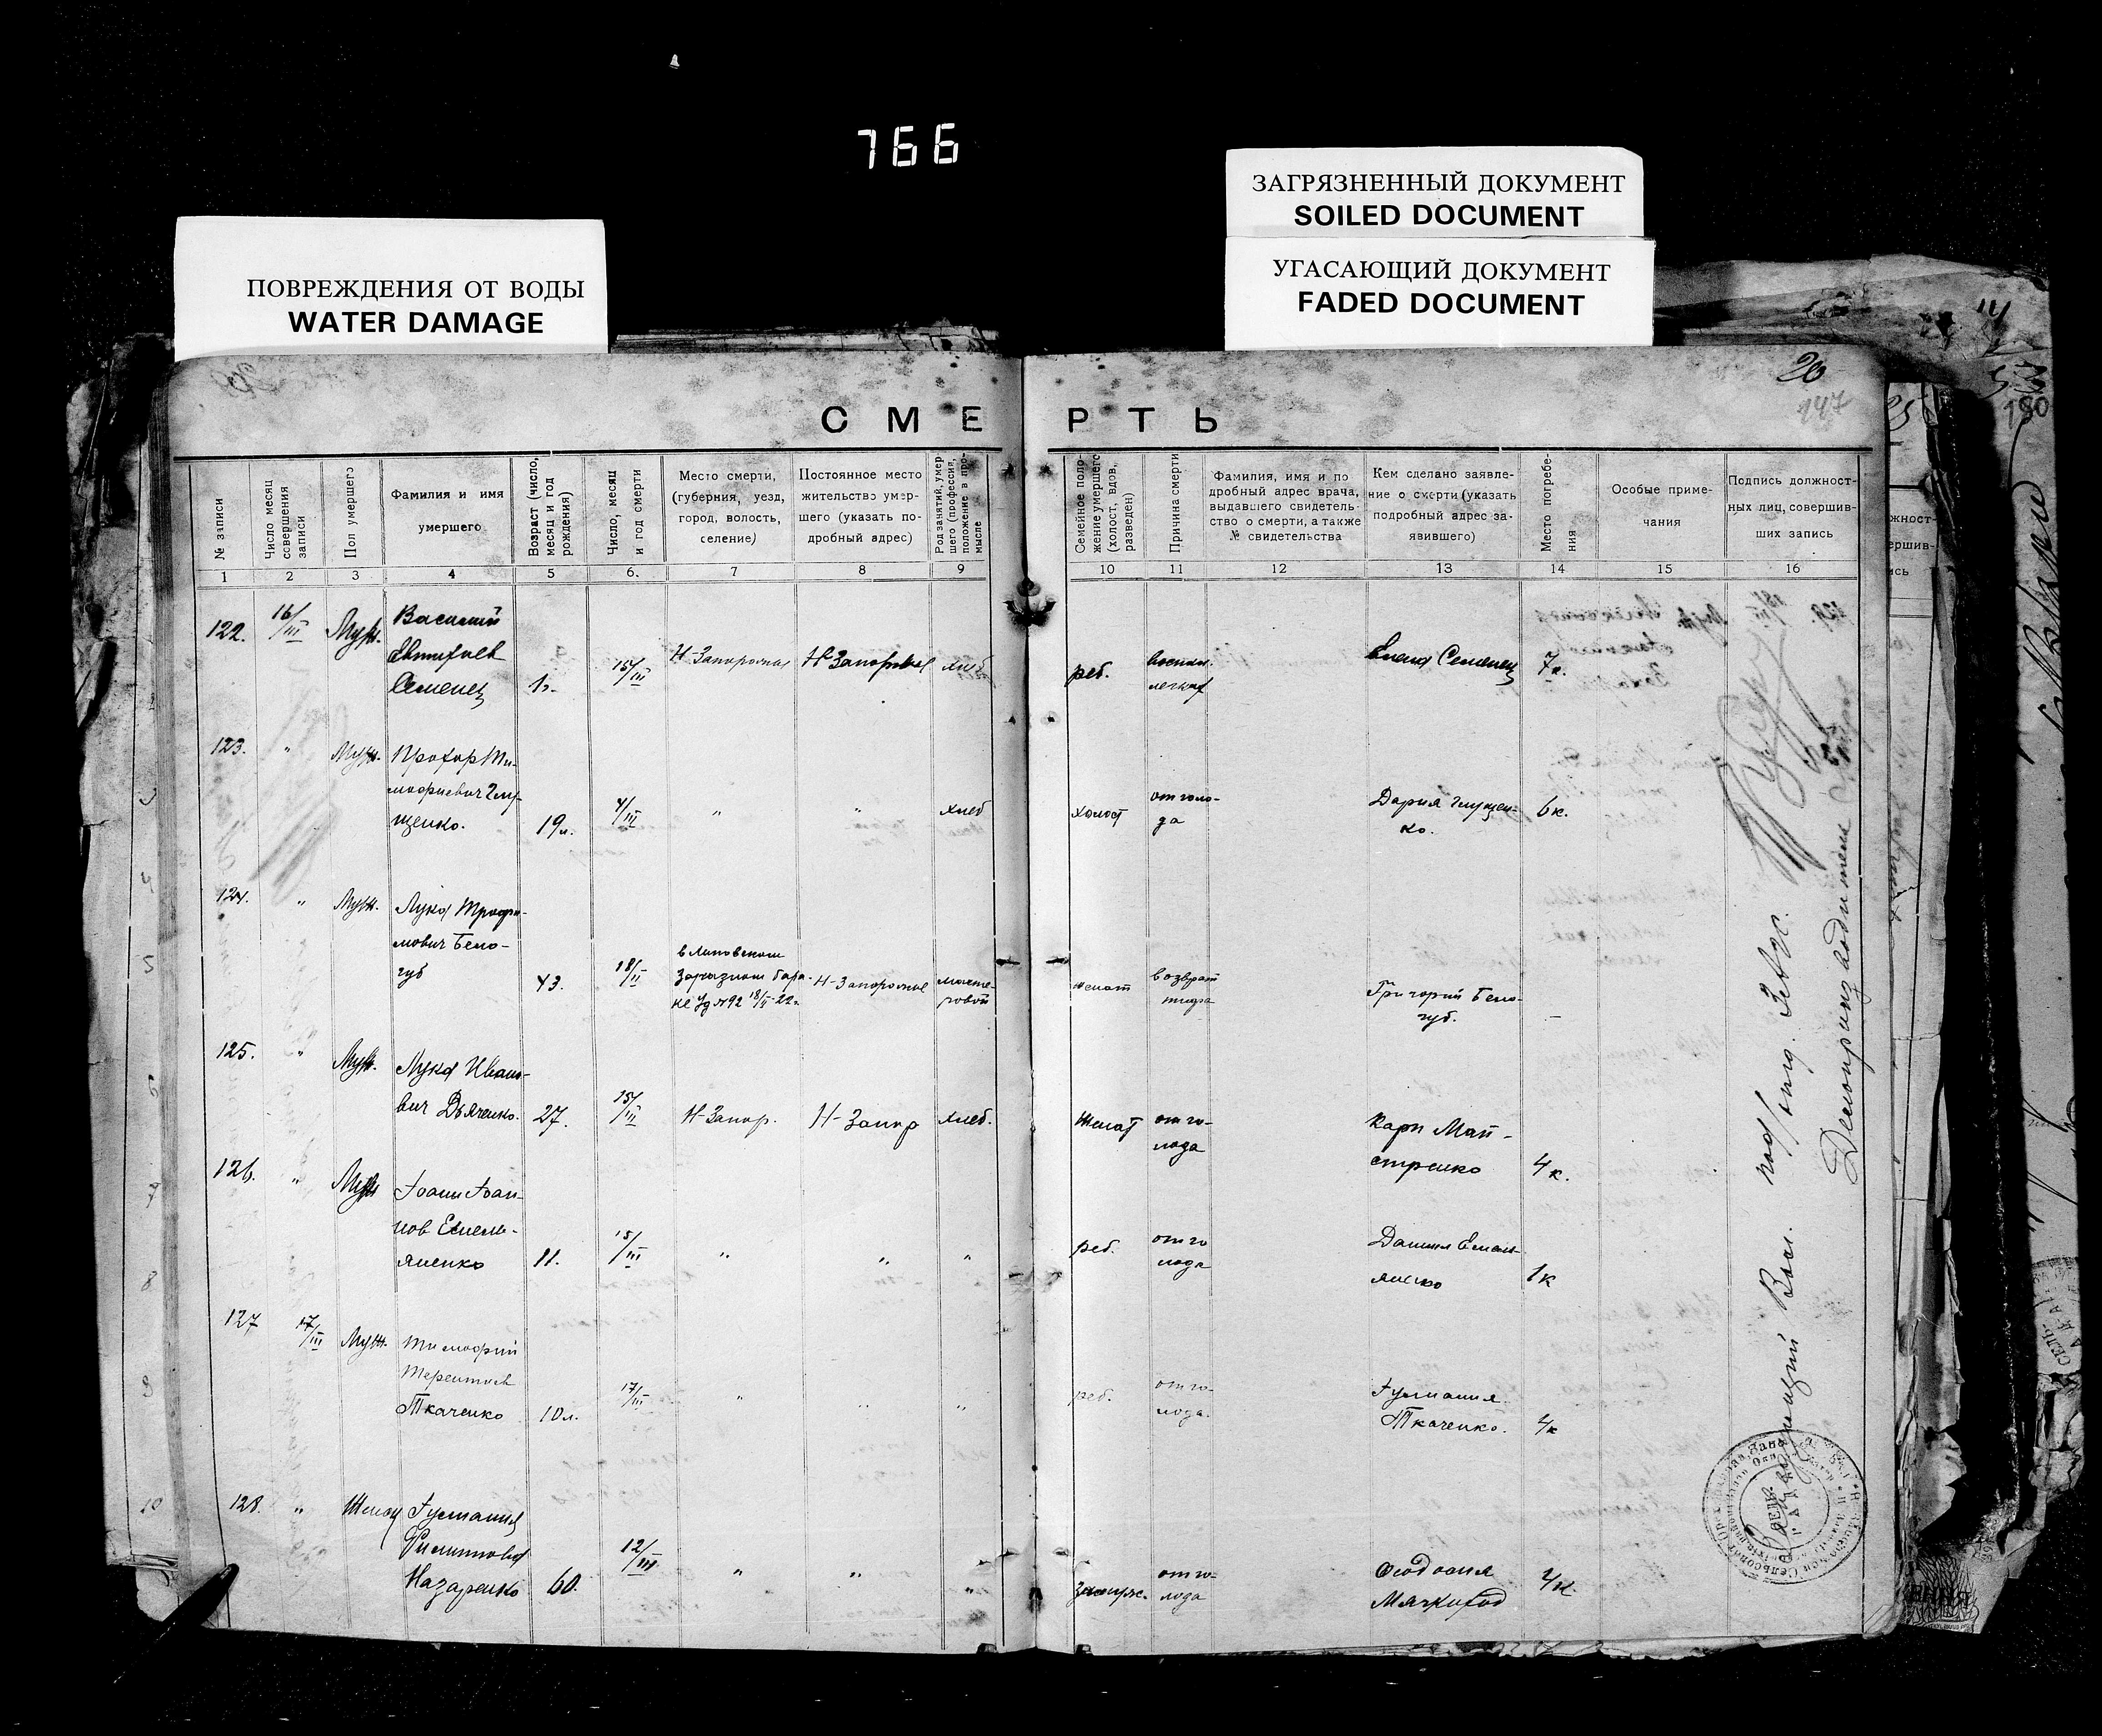 766
ПОВРЕЖДЕНИЯ ОТ ВОДЫ
WATER DAMAGE
ЗАГРЯЗНЕННЫЙ ДОКУМЕНТ
SOILED DOCUMENT
УГАСАЮЩИЙ ДОКУМЕНТ
FADED DOCUMENT
20
147
СМЕРТЬ
№ записи
Число месяц
совершения
записи
Пол умершего
Фамилия и имя
умершего
Возраст (число,
месяц и год
рождения)
Число, месяц
и год смерти
Место смерти,
(губерния, уезд,
город, волость,
селение)
Постоянное место
жительство умер-
шего (указать по-
дробный адрес)
Род занятий, умер-
шего (профессия,
положение в про-
мысле
Семейное поло-
жение умершего
(холост, вдов.,
разведен)
Причина смерти
Фамилия, имя и по
дробный адрес врача,
выдавшего свидетель-
ство о смерти, а также
№ свидетельства
Кем сделано заявле-
ние о смерти (указать
подробный адрес за-
явившего)
Место погребе-
ния
Особые приме-
чания
Подпись должност-
ных лиц, совершив-
ших запись
1 2 3 4 5 6. 7 8 9 10 11 12 13 14 15 16
122. 16/III Муж. Василий
Семенец 1г. 15/III Н-Запорожье Н-Запорожье хлеб
реб. воспал.
легких
Елена Семенец 7к.
123. " Муж. Прохор Ти-
мофиевич Глу-
щенко. 19л. 4/III " " хлеб
холост от голо-
да
Дария Глущен-
ко. 6к.
124. " Муж. Лука Трофи-
мович Бело-
губ 43. 18/II
в Липовеком
Заразном бара-
ке Уд №92 18/II-22г.
Н-Запорожье
женат возврат
тифа
Григорий Бело-
губ. –
125. " Муж. Лука Ивано-
вич Дьяченко. 27. 15/III Н-Запор. Н-Запор хлеб.
женат от го-
лода
Карп Май-
стренко 4к.
126. " Муж Іоанн Іоан-
нов Емель-
яненко 11. 15/III " " "
реб. от го
лода
Даниил Емель-
яненко 1к
127 17/III Муж. Тимофий
Терентьев
Ткаченко 10л. 17/III " " "
реб. от го-
лода.
Іулиания
Ткаченко. 4к
128. " Женск Іулиания
Филиппова
Назаренко 60. 12/III " " "
замуж. от го-
лода
Феодосия
Мягкоход 4к.
Делопроизводитель